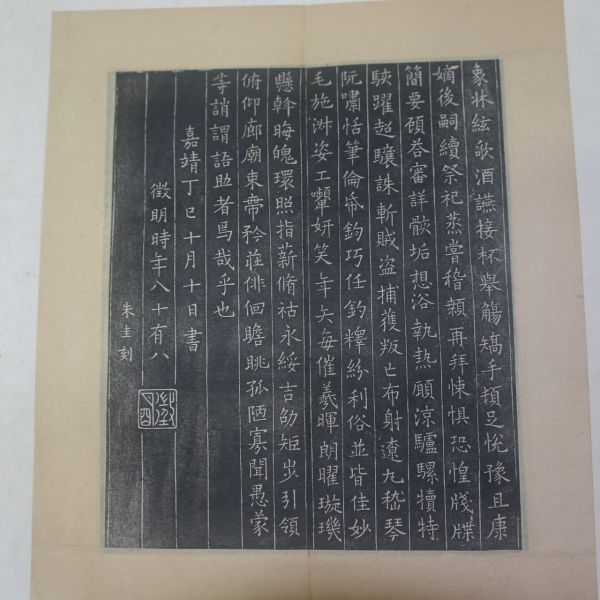 象牀絃歌酒讌接杯舉觴矯手頓足悅豫且康
嫡後嗣續祭祀蒸嘗稽顙再拜悚懼恐惶牋牒
簡要顧答審詳骸垢想浴執熱願涼驢騾犢特
駭躍超驤誅斬賊盗捕獲叛亡布射遼丸嵇琴
阮嘯恬筆倫帋鈞巧任釣釋紛利俗並皆佳妙
毛施淑姿工顰妍笑年矢每催羲暉朗曜璇璣
懸斡晦魄環照指薪脩祜永綏吉劭矩步引領
俯仰廊廟束帶矜莊徘徊瞻眺孤陋寡聞愚蒙
等誚謂語助者焉哉乎也
嘉靖丁巳十月十日書
徵明時年八十有八
朱圭刻